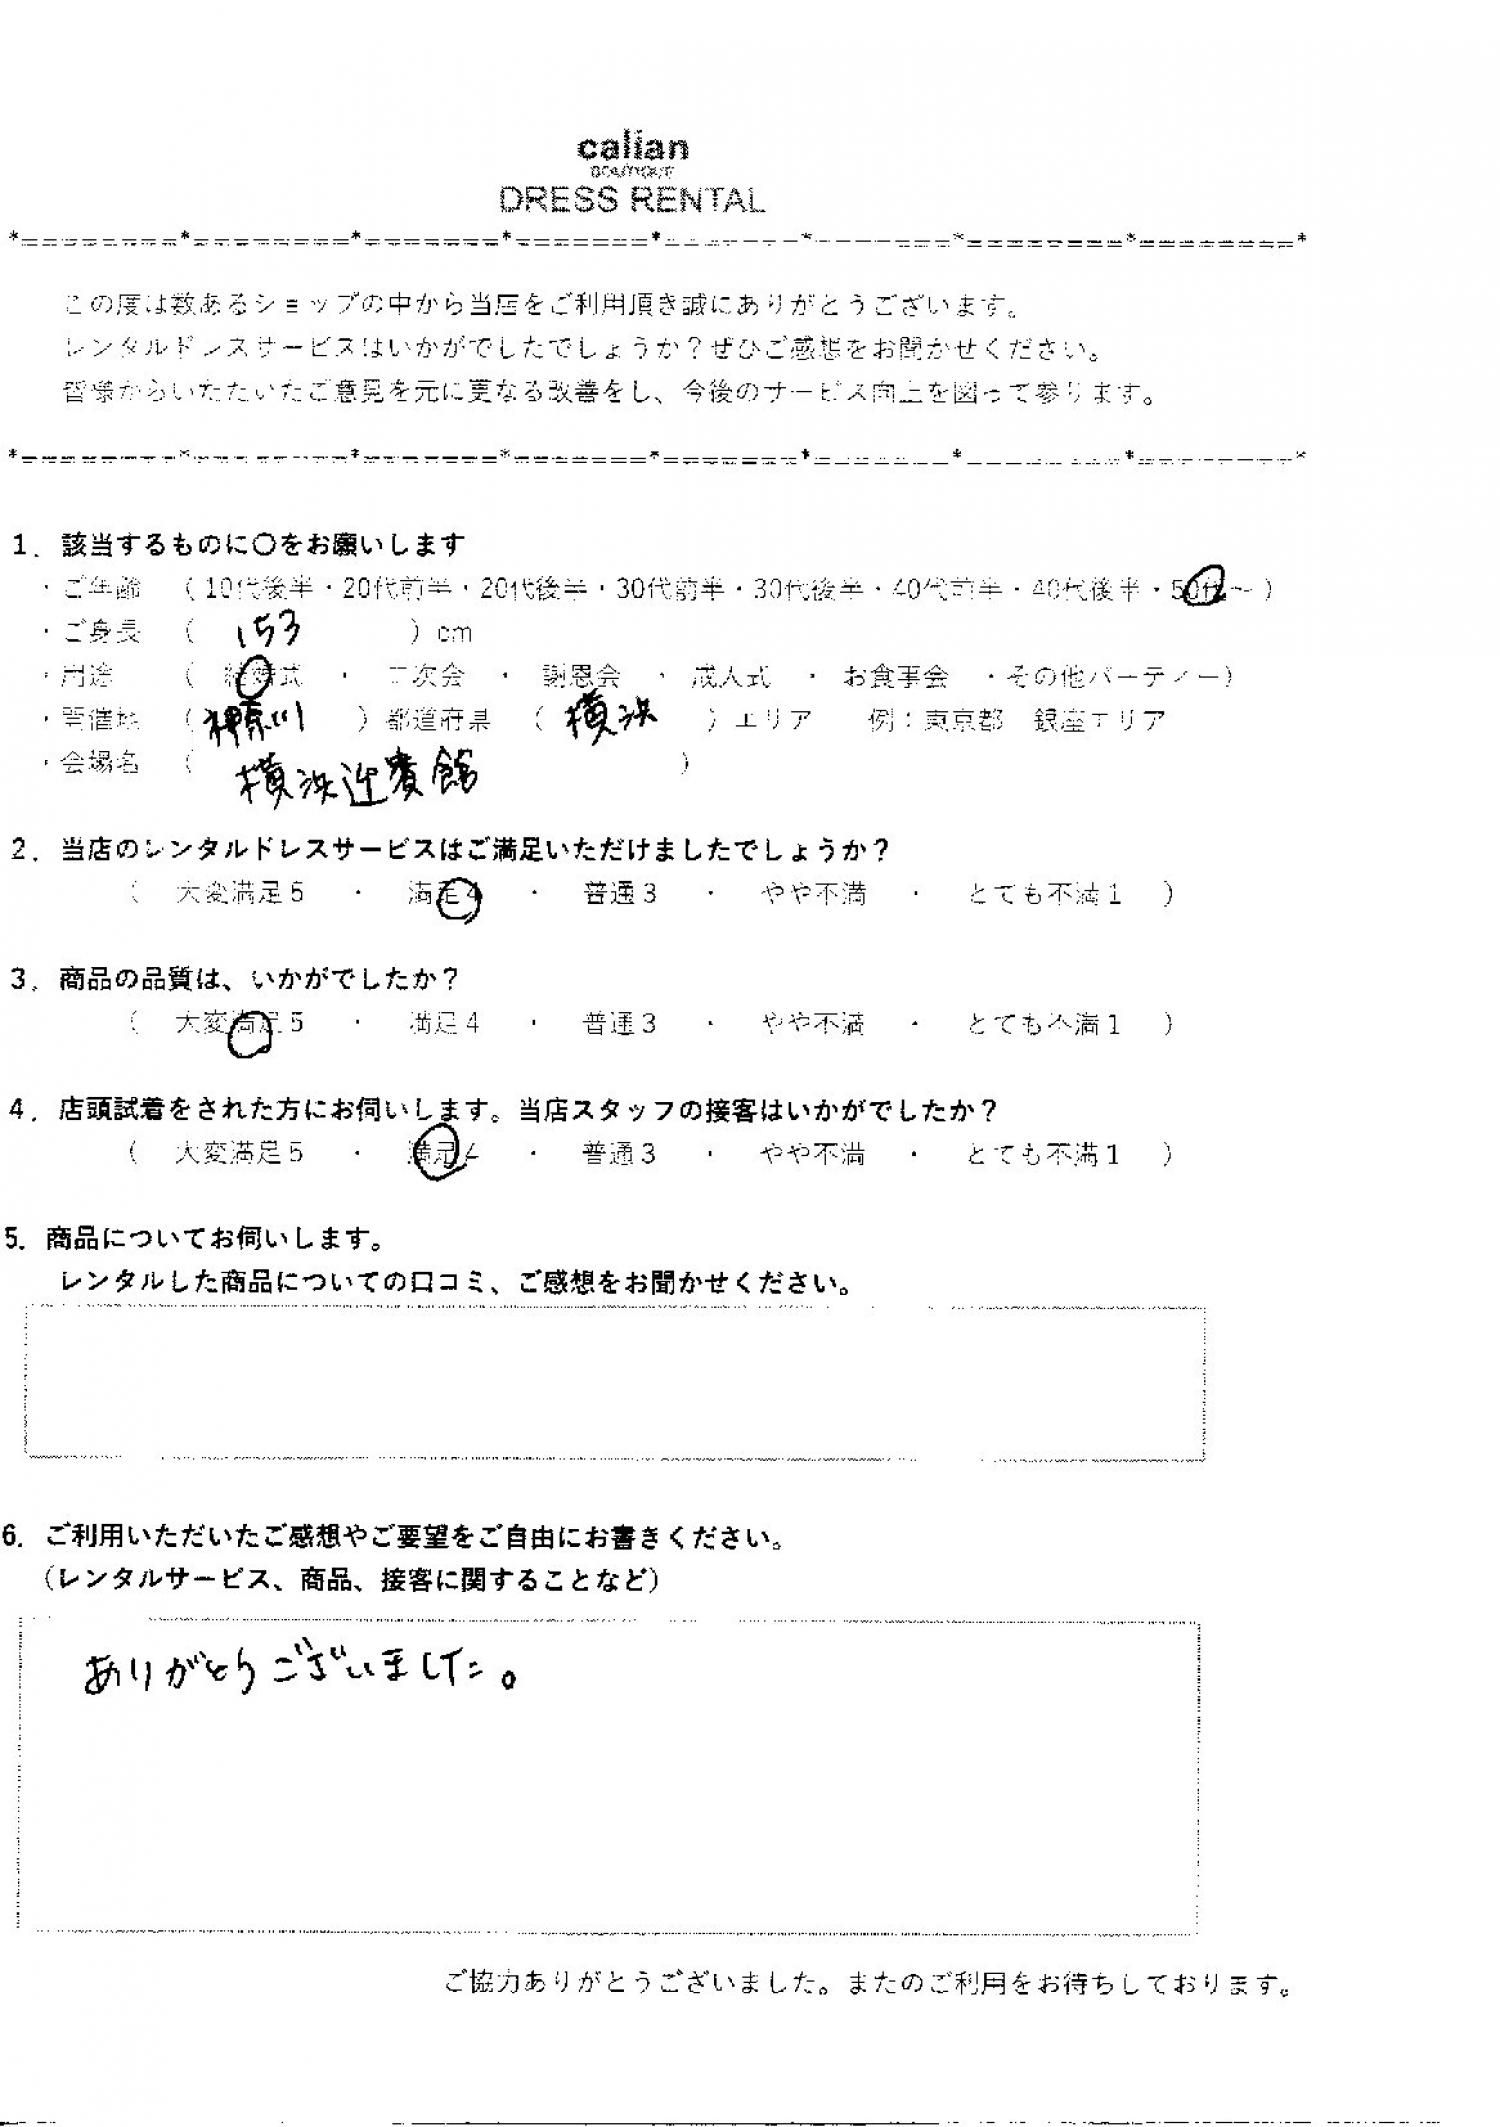 calian
BOUTIQUE
DRESS RENTAL
*========*========*=======*=======*=======*=======*========*========*
この度は数あるショップの中から当店をご利用頂き誠にありがとうございます。
レンタルドレスサービスはいかがでしたでしょうか？ぜひご感想をお聞かせください。
皆様からいただいたご意見を元に更なる改善をし、今後のサービス向上を図って参ります。
*========*========*=======*=======*=======*=======*========*========*
1．該当するものに〇をお願いします
・ご年齢 （ 10代後半・20代前半・20代後半・30代前半・30代後半・40代前半・40代後半・50代～ ）
・ご身長 （ 153 ）cm
・用途 （ 結婚式 ・ 二次会 ・ 謝恩会 ・ 成人式 ・ お食事会 ・その他パーティー）
・開催地 （ 神奈川 ）都道府県 （ 横浜 ）エリア 例：東京都 銀座エリア
・会場名 （ 横浜迎賓館 ）
2．当店のレンタルドレスサービスはご満足いただけましたでしょうか？
（ 大変満足５ ・ 満足４ ・ 普通３ ・ やや不満 ・ とても不満１ ）
3．商品の品質は、いかがでしたか？
（ 大変満足５ ・ 満足４ ・ 普通３ ・ やや不満 ・ とても不満１ ）
4．店頭試着をされた方にお伺いします。当店スタッフの接客はいかがでしたか？
（ 大変満足５ ・ 満足４ ・ 普通３ ・ やや不満 ・ とても不満１ ）
5．商品についてお伺いします。
レンタルした商品についての口コミ、ご感想をお聞かせください。
6．ご利用いただいたご感想やご要望をご自由にお書きください。
（レンタルサービス、商品、接客に関することなど）
ありがとうございました。
ご協力ありがとうございました。またのご利用をお待ちしております。